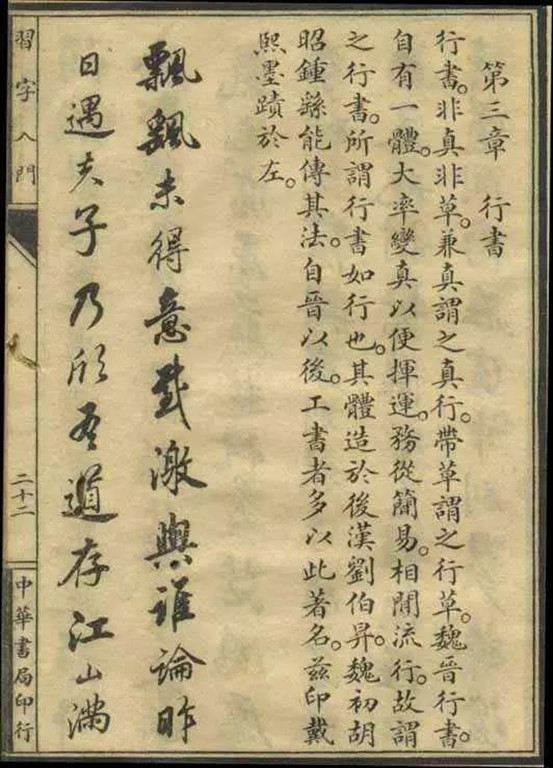 第三章　行書
行書。非真非草。兼真謂之真行。帶草謂之行草。魏晉行書。
自有一體。大率變真以便揮運。務從簡易。相間流行。故謂
之行書。所謂行書如行也。其體造於後漢劉伯昇。魏初胡
昭鍾繇能傳其法。自晉以後。工書者多以此著名。茲印戴
熙墨蹟於左。
飄飄未得意感激與誰論昨
日遇夫子乃欣吾道存江山滿
習字入門
二十二
中華書局印行